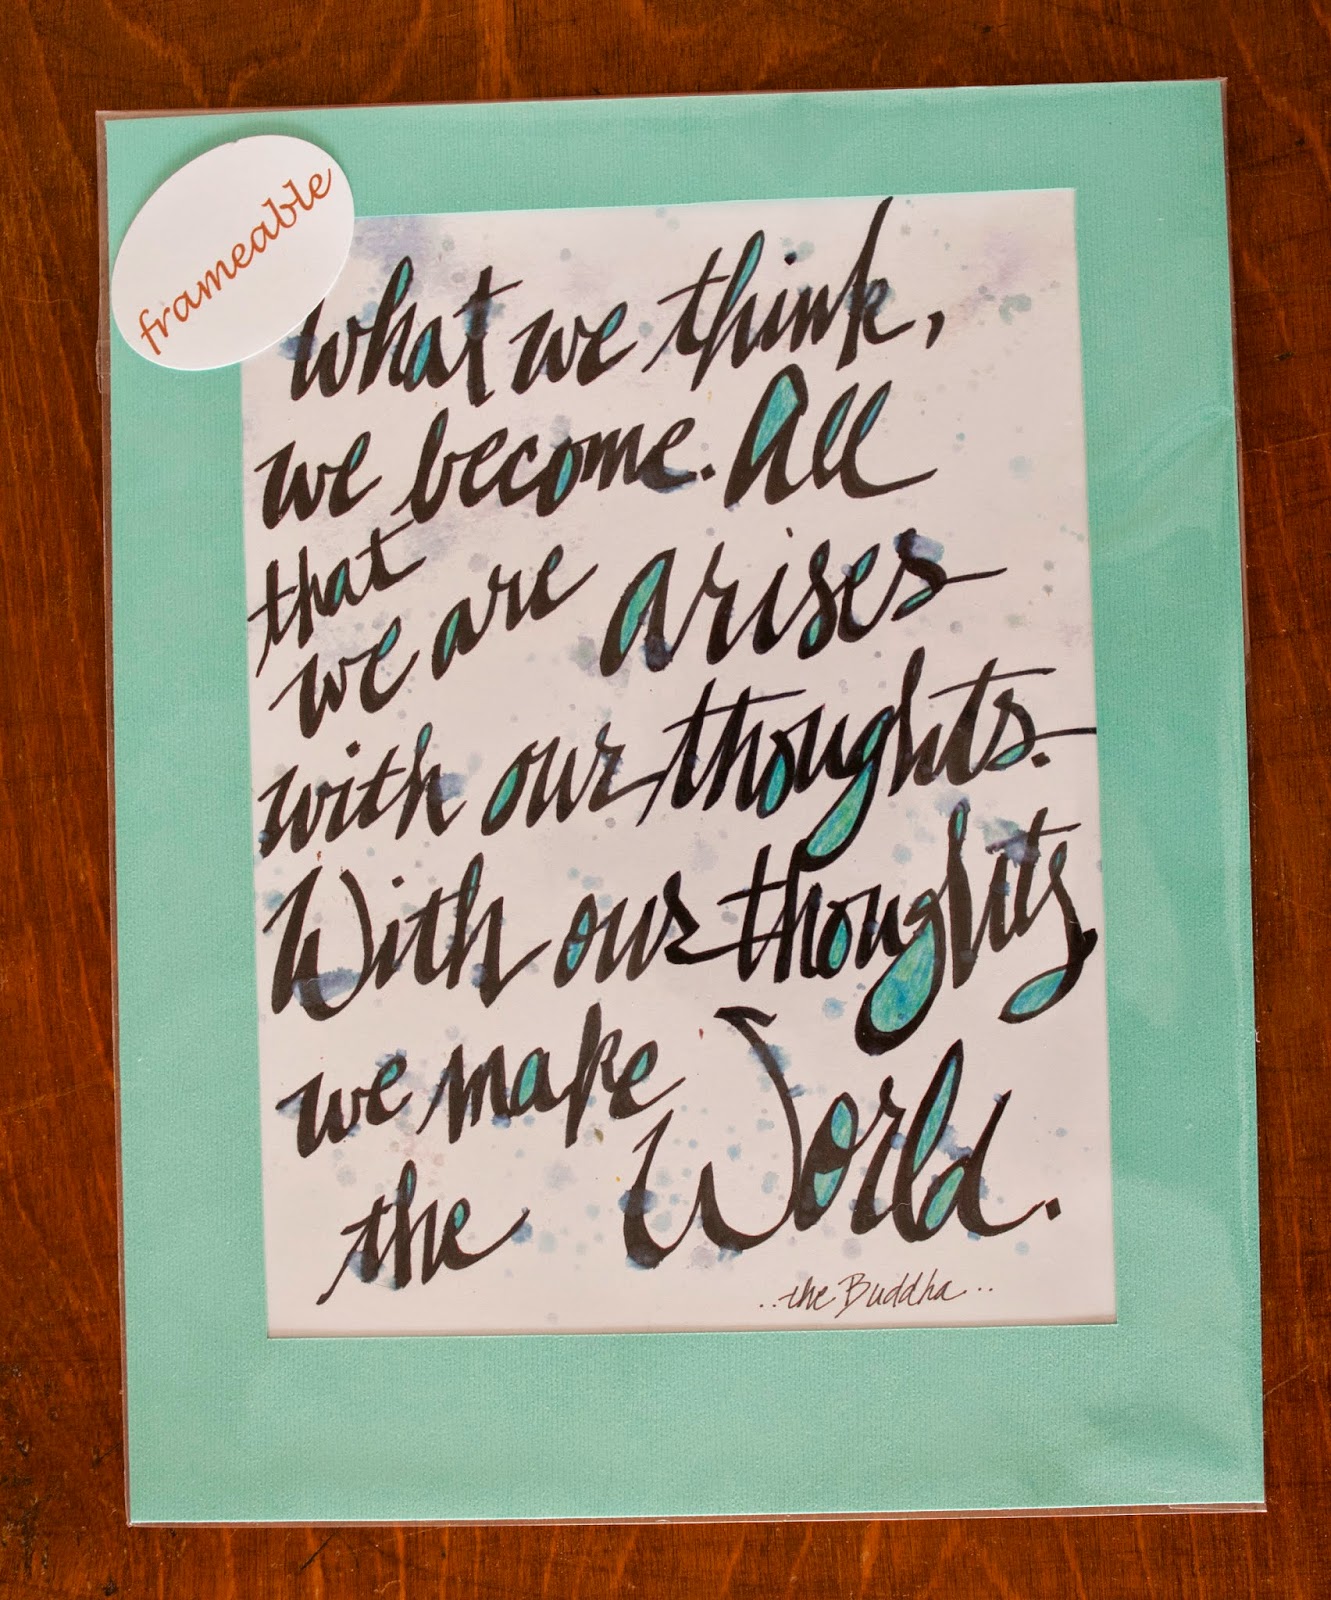 frameable
What we think,
we become. All
that
we are arises
with our thoughts.
With our thoughts,
we make
the World.
..the Buddha..